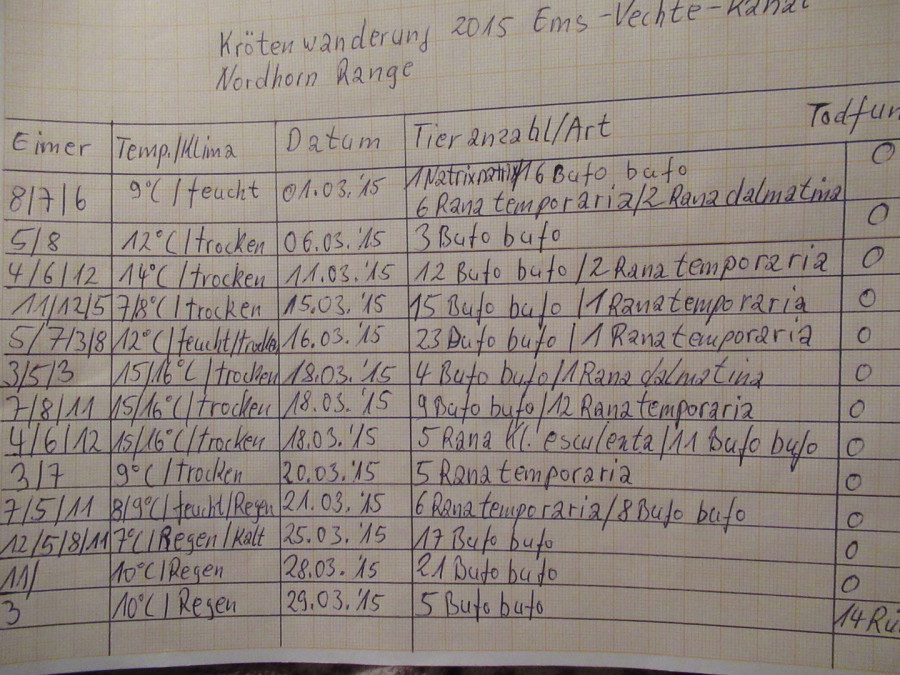 Krötenwanderung 2015 Ems-Vechte-Kanal
Nordhorn Range
Eimer Temp./Klima Datum Tieranzahl/Art Todfun
8/7/6 9°C/feucht 01.03.'15 1 Natrix natrix/16 Bufo bufo 0
6 Rana temporaria/2 Rana dalmatina
5/8 12°C/trocken 06.03.'15 3 Bufo bufo 0
4/6/12 14°C/trocken 11.03.'15 12 Bufo bufo/2 Rana temporaria 0
11/12/5 7/8°C/trocken 15.03.'15 15 Bufo bufo/1 Rana temporaria 0
5/7/3/8 12°C/feucht/trocken 16.03.'15 23 Bufo bufo/1 Rana temporaria 0
3/5/3 15/16°C/trocken 18.03.'15 4 Bufo bufo/1 Rana dalmatina 0
7/8/11 15/16°C/trocken 18.03.'15 9 Bufo bufo/12 Rana temporaria 0
4/6/12 15/16°C/trocken 18.03.'15 5 Rana Kl. esculenta/11 Bufo bufo 0
3/7 9°C/trocken 20.03.'15 5 Rana temporaria 0
7/5/11 8/9°C/feucht/Regen 21.03.'15 6 Rana temporaria/8 Bufo bufo 0
12/5/8/11 7°C/Regen/Kalt 25.03.'15 17 Bufo bufo 0
11/ 10°C/Regen 28.03.'15 21 Bufo bufo 0
3 10°C/Regen 29.03.'15 5 Bufo bufo 14 Rü